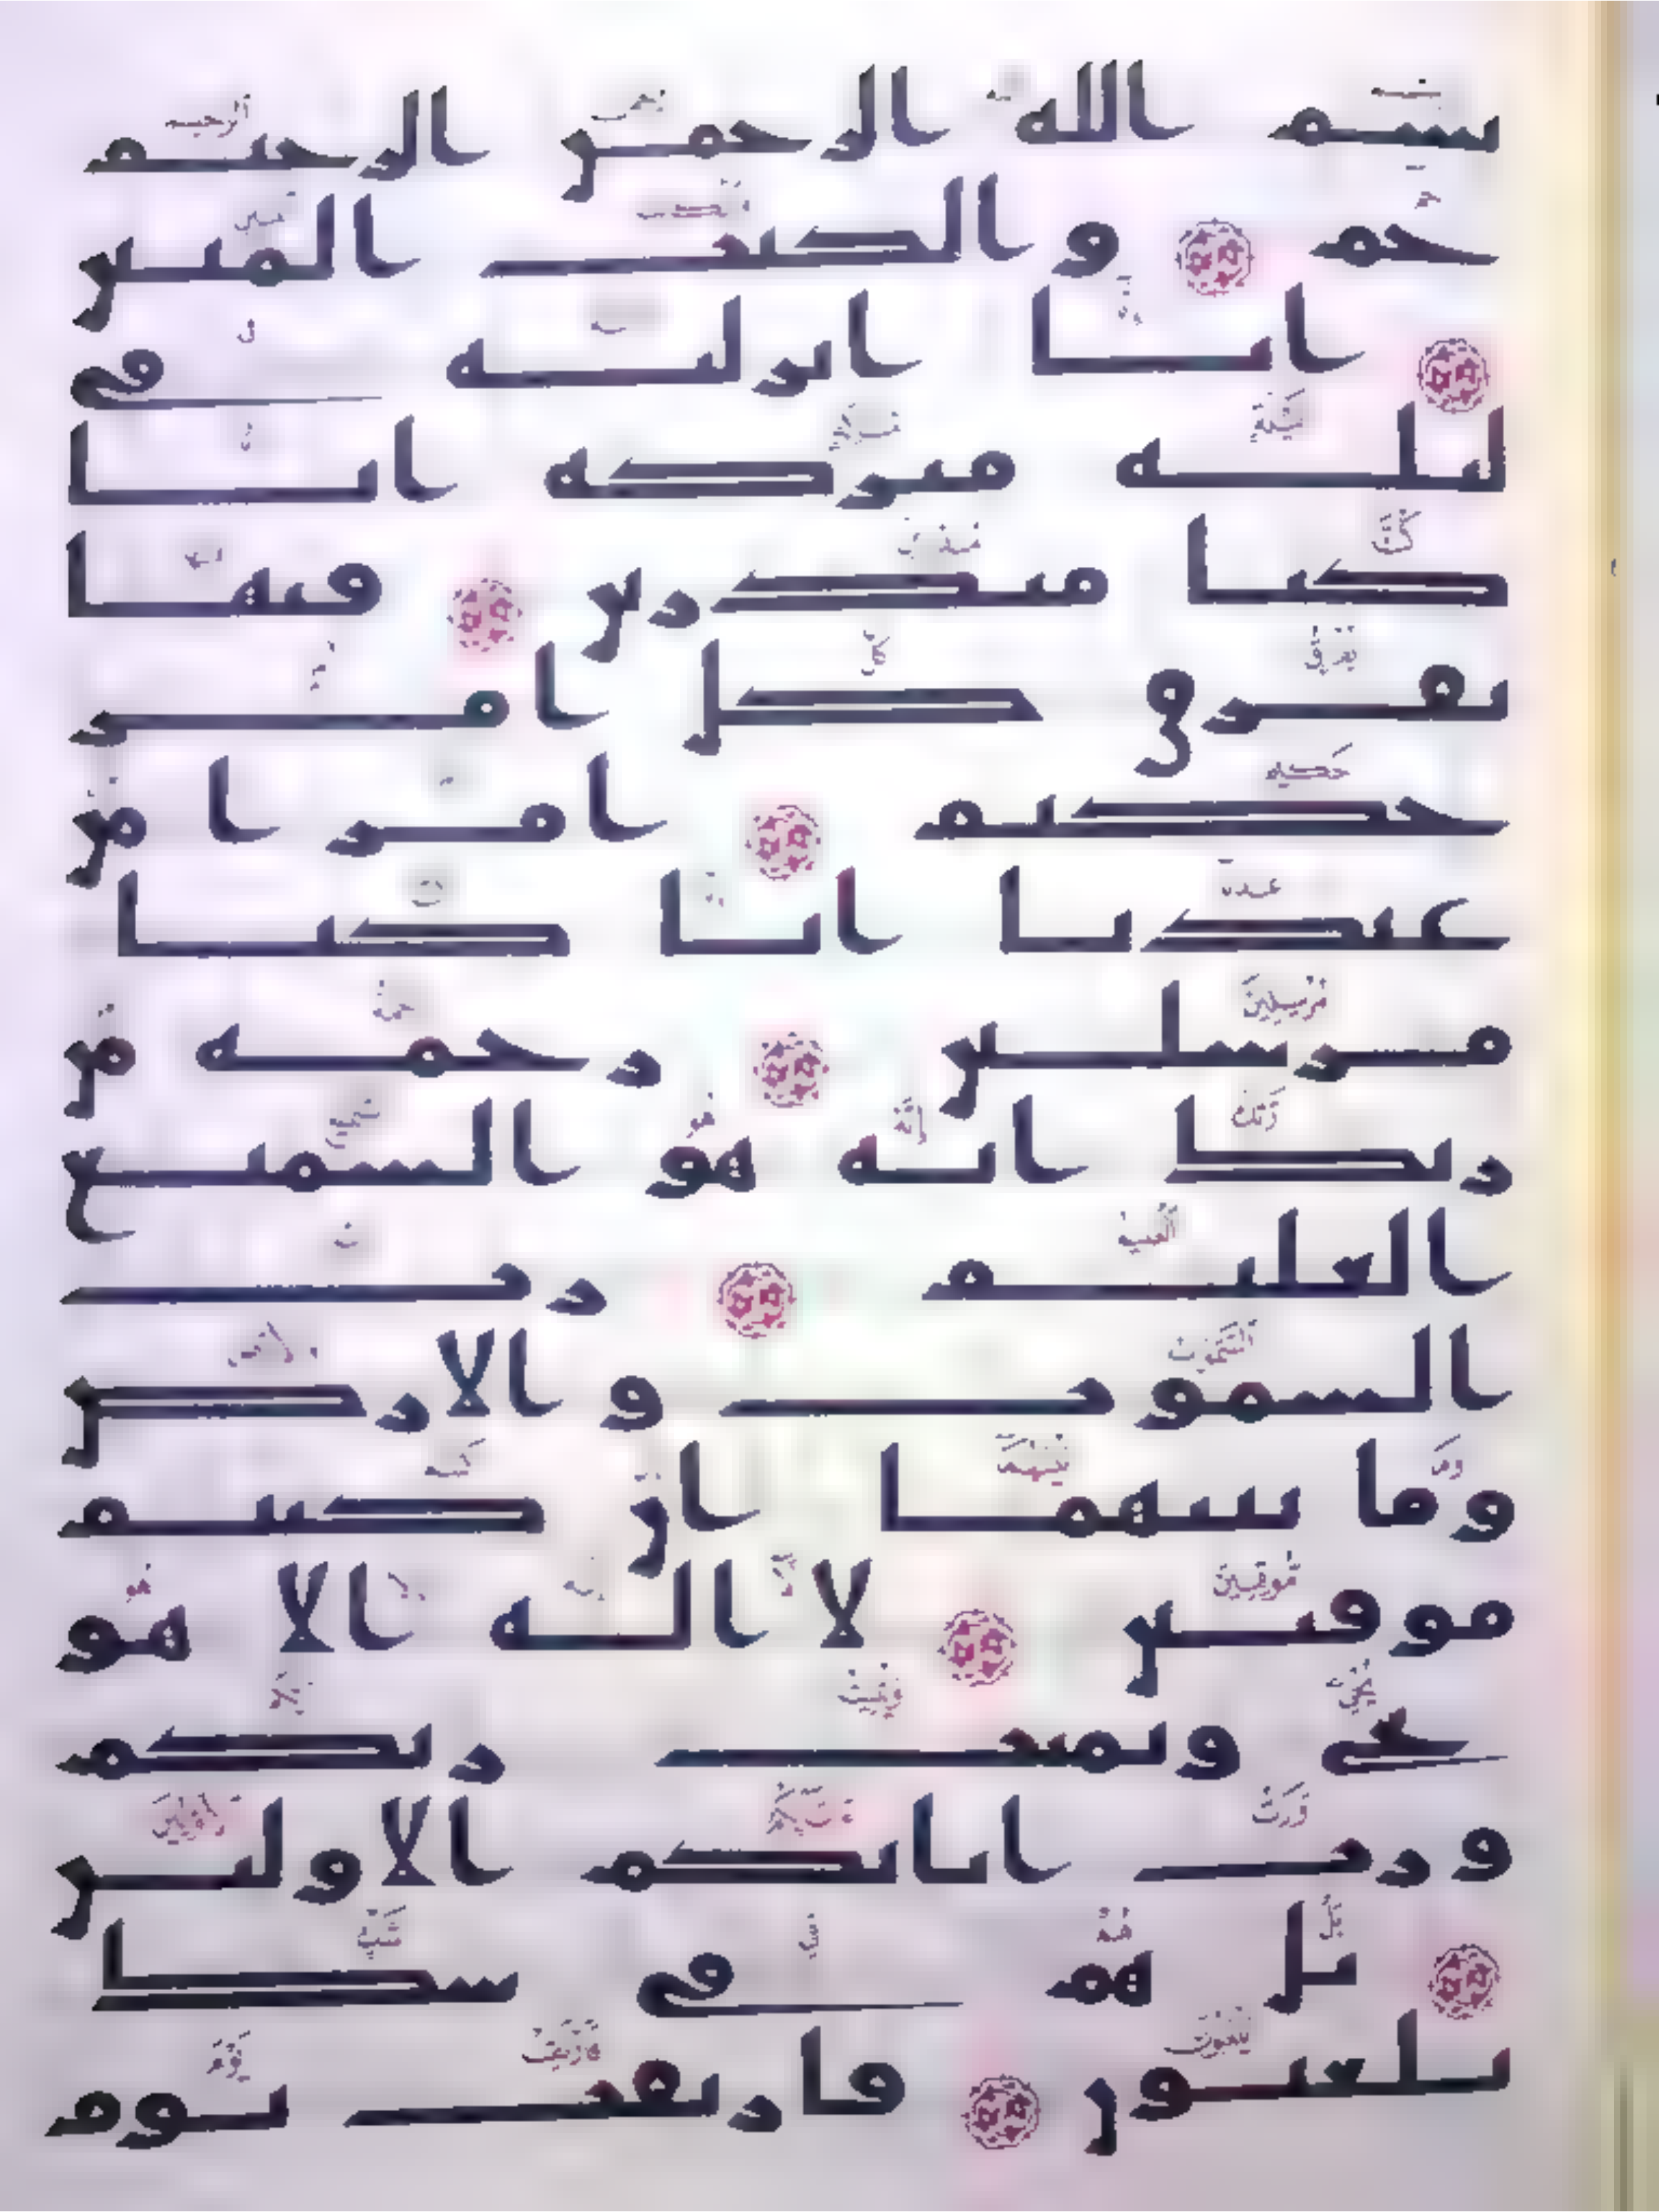 بسم الله الرحمن الرحيم
حم والكتب المبين
انا انزلنه في
ليلة مبركة انا
كنا منذرين فيها
يفرق كل امر
حكيم امرا من
عندنا انا كنا
مرسلين رحمة من
ربك انه هو السميع
العليم رب
السموت والارض
وما بينهما ان كنتم
موقنين لا اله الا هو
يحي ويميت ربكم
ورب ابائكم الاولين
بل هم في شك
يلعبون فارتقب يوم